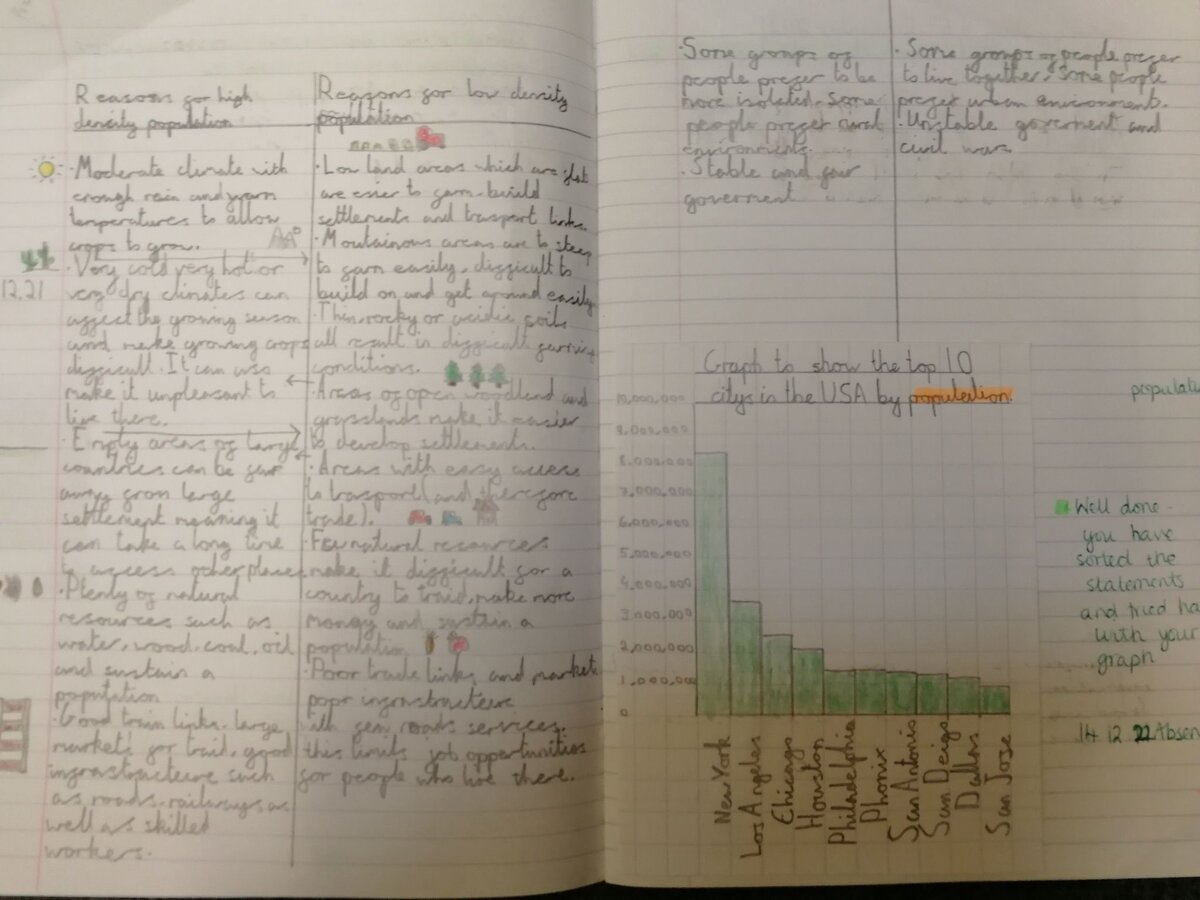 Reasons for high
density population
Moderate climate with
enough rain and warm
temperatures to allow
crops to grow.
Very cold very hot or
very dry climates can
affect the growing season
and make growing crops
difficult. It can also
make it unpleasant to
live there.
Empty areas of large
countries can be far
away from large
settlement meaning it
can take a long time
to access other places
Plenty of natural
resources such as
water, wood, coal, oil
and sustain a
population
Good train links, large
markets for traid, good
infrastructure such
as roads, railways as
well as skilled
workers.
12.21
Reasons for low density
population
Low land areas which are flat
are esier to farm, build
settlements and trasport links.
Moutainous areas are to steep
to farm easily, difficult to
build on and get around easily
Thin, rocky or acidic soils
all result in difficult farming
conditions.
Areas of open woodland and
grasslands make it easier
to develop settlements.
Areas with easy access
to trasport (and therefore
trade).
Few natural resources
make it difficult for a
country to traid, make more
money and sustain a
population
Poor trade links and markets
poor infrastructure
with few roads services,
this limits job opportunities
for people who live there.
Some groups of
people prefer to be
more isolated. Some
people prefer rural
environments.
Stable and fair
goverment
Some groups of people prefer
to live together. Some people
prefer urban environment.
Unstable goverment and
civil wars
Graph to show the top 10
citys in the USA by population.
10,000,000
9,000,000
8,000,000
7,000,000
6,000,000
5,000,000
4,000,000
3,000,000
2,000,000
1,000,000
0
New York
Los Angeles
Chicago
Houston
Philadelphia
Phonix
San Antonio
San Deigo
Dallas
San Jose
populati
Well done -
you have
sorted the
statements
and tried ha
with your
graph
14 12 22 Absen